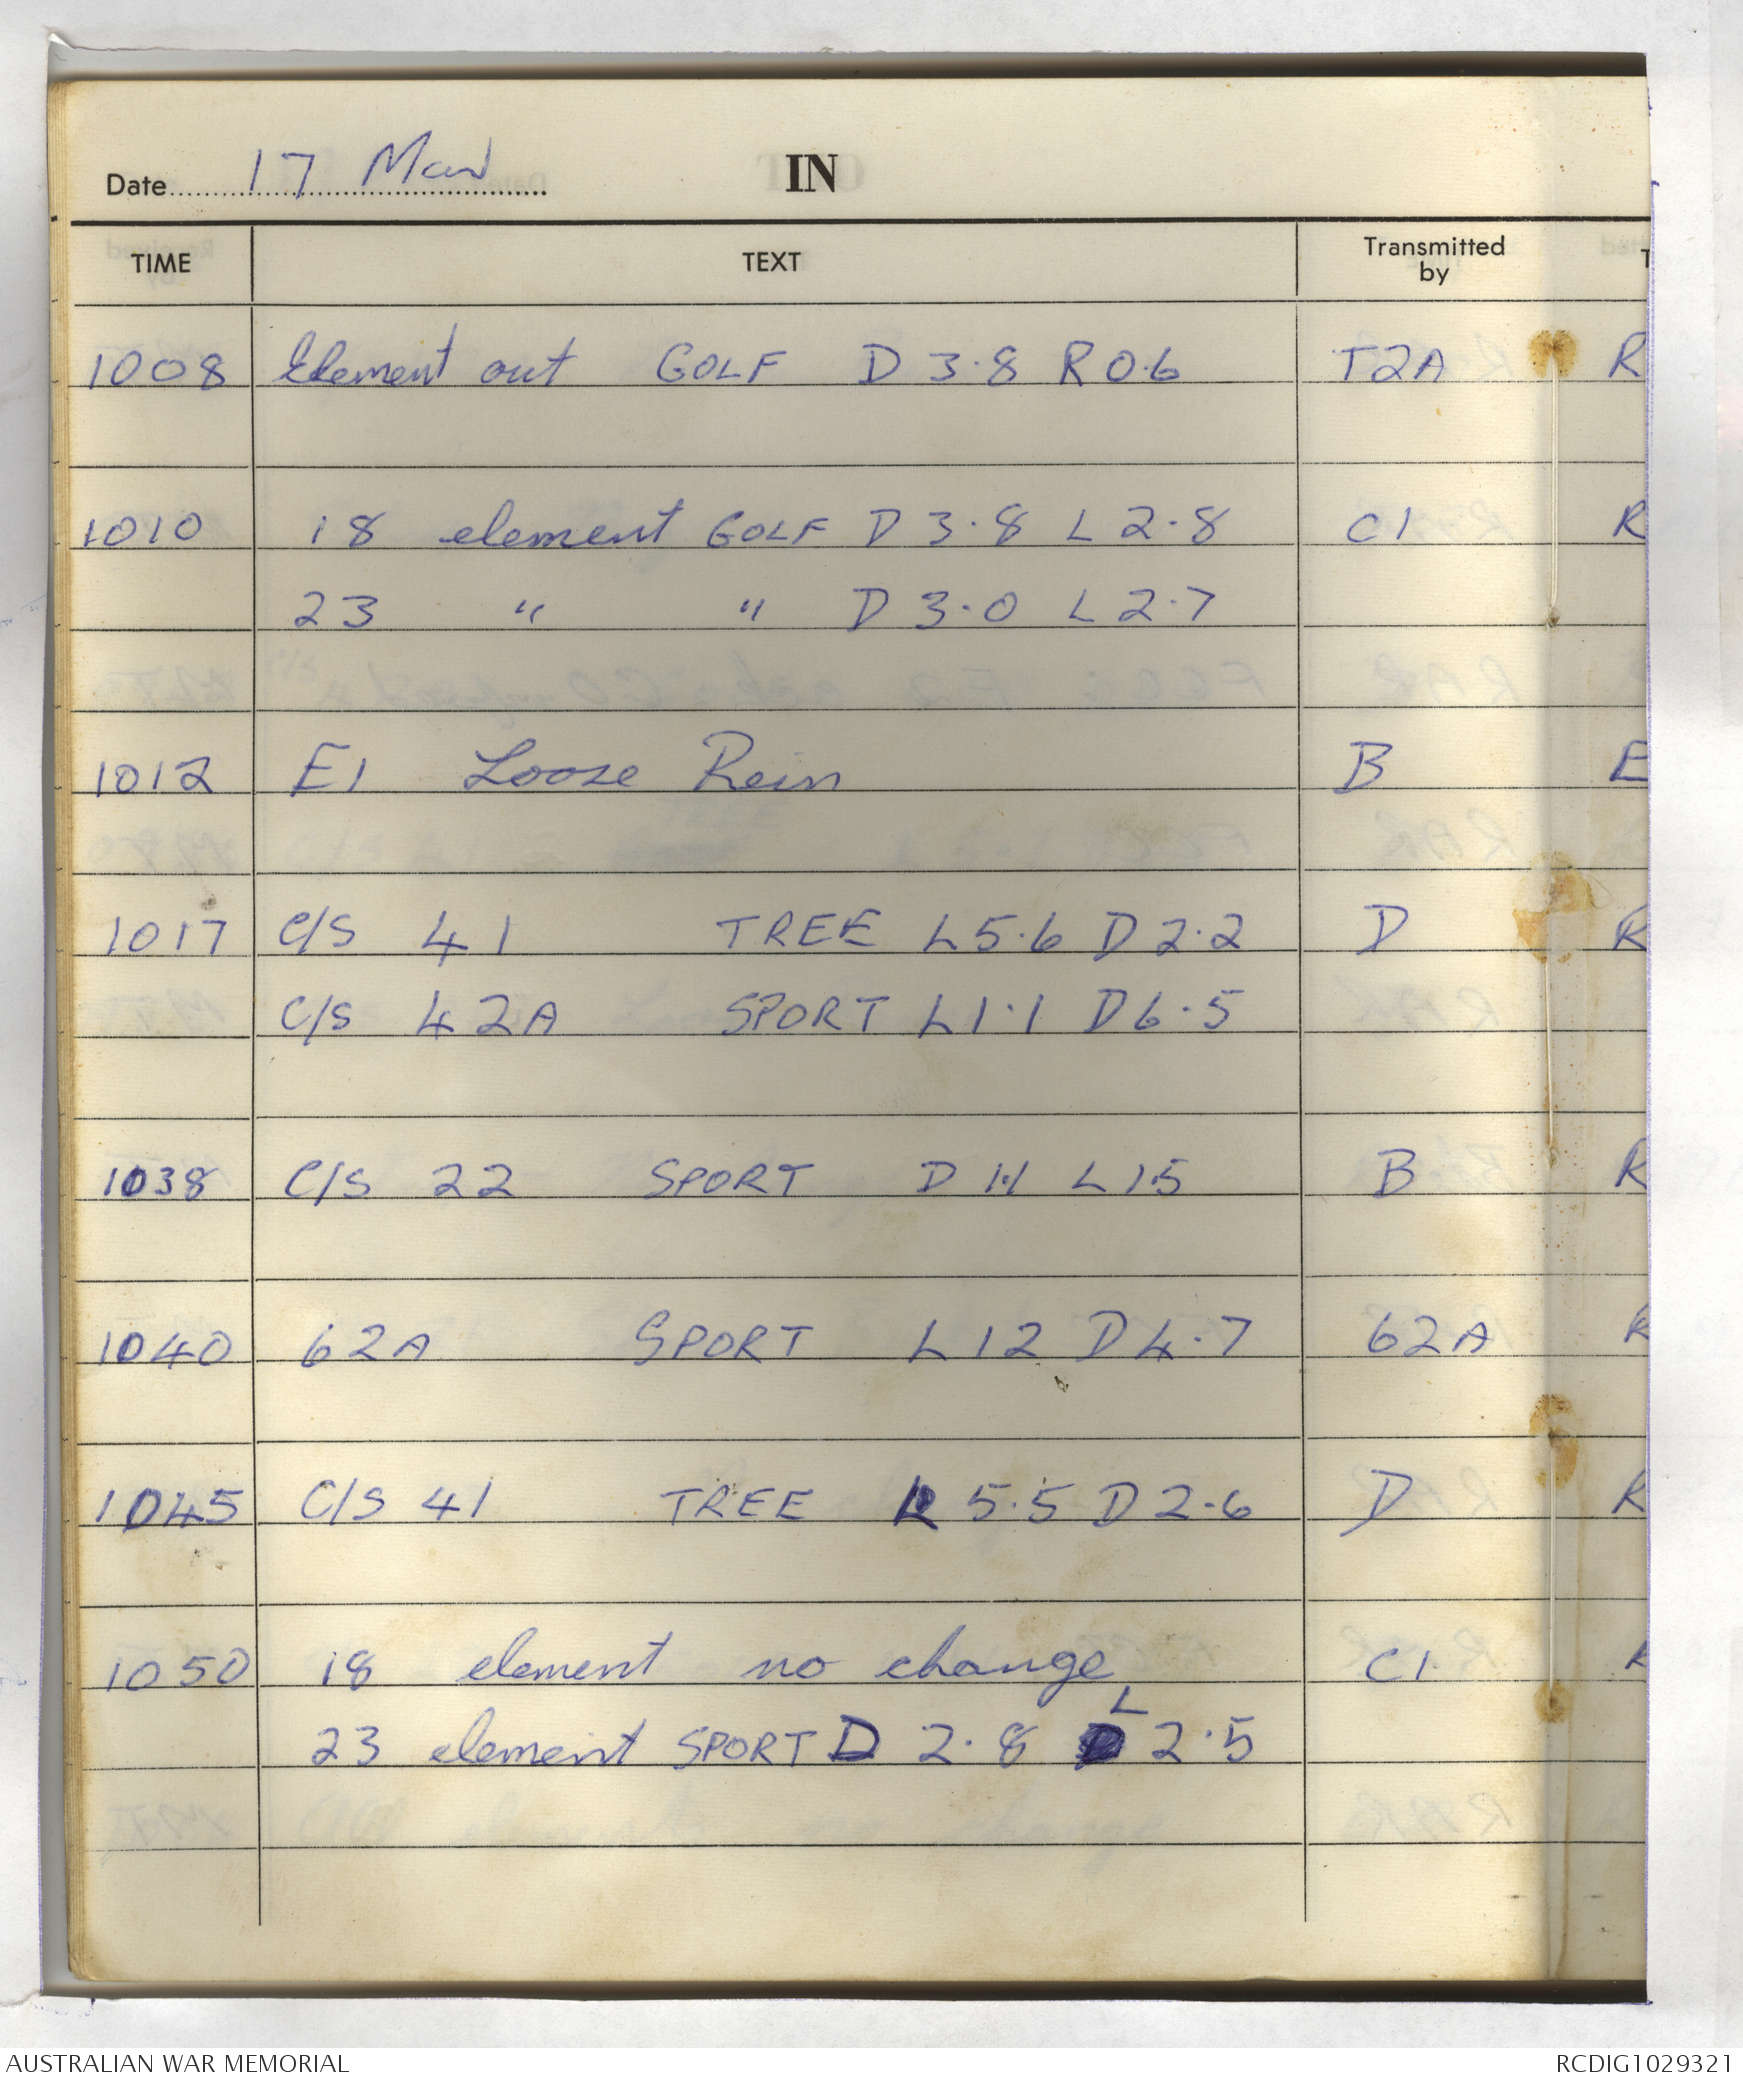 Date 17 Mar
IN
TIME TEXT Transmitted by T
1008 Element out GOLF D 3.8 R 0.6 T2A R
1010 18 element GOLF D 3.8 L 2.8 C1 R
23 " " D 3.0 L 2.7
1012 E1 Loose Rein B E
1017 C/S 41 TREE L 5.6 D 2.2 D R
C/S 42A SPORT L 1.1 D 6.5
1038 C/S 22 SPORT D 1.1 L 1.5 B R
1040 62A SPORT L 12 D 4.7 62A R
1045 C/S 41 TREE R 5.5 D 2.6 D R
1050 18 element no change C1 R
23 element SPORT D 2.8 L 2.5
AUSTRALIAN WAR MEMORIAL RCDIG1029321